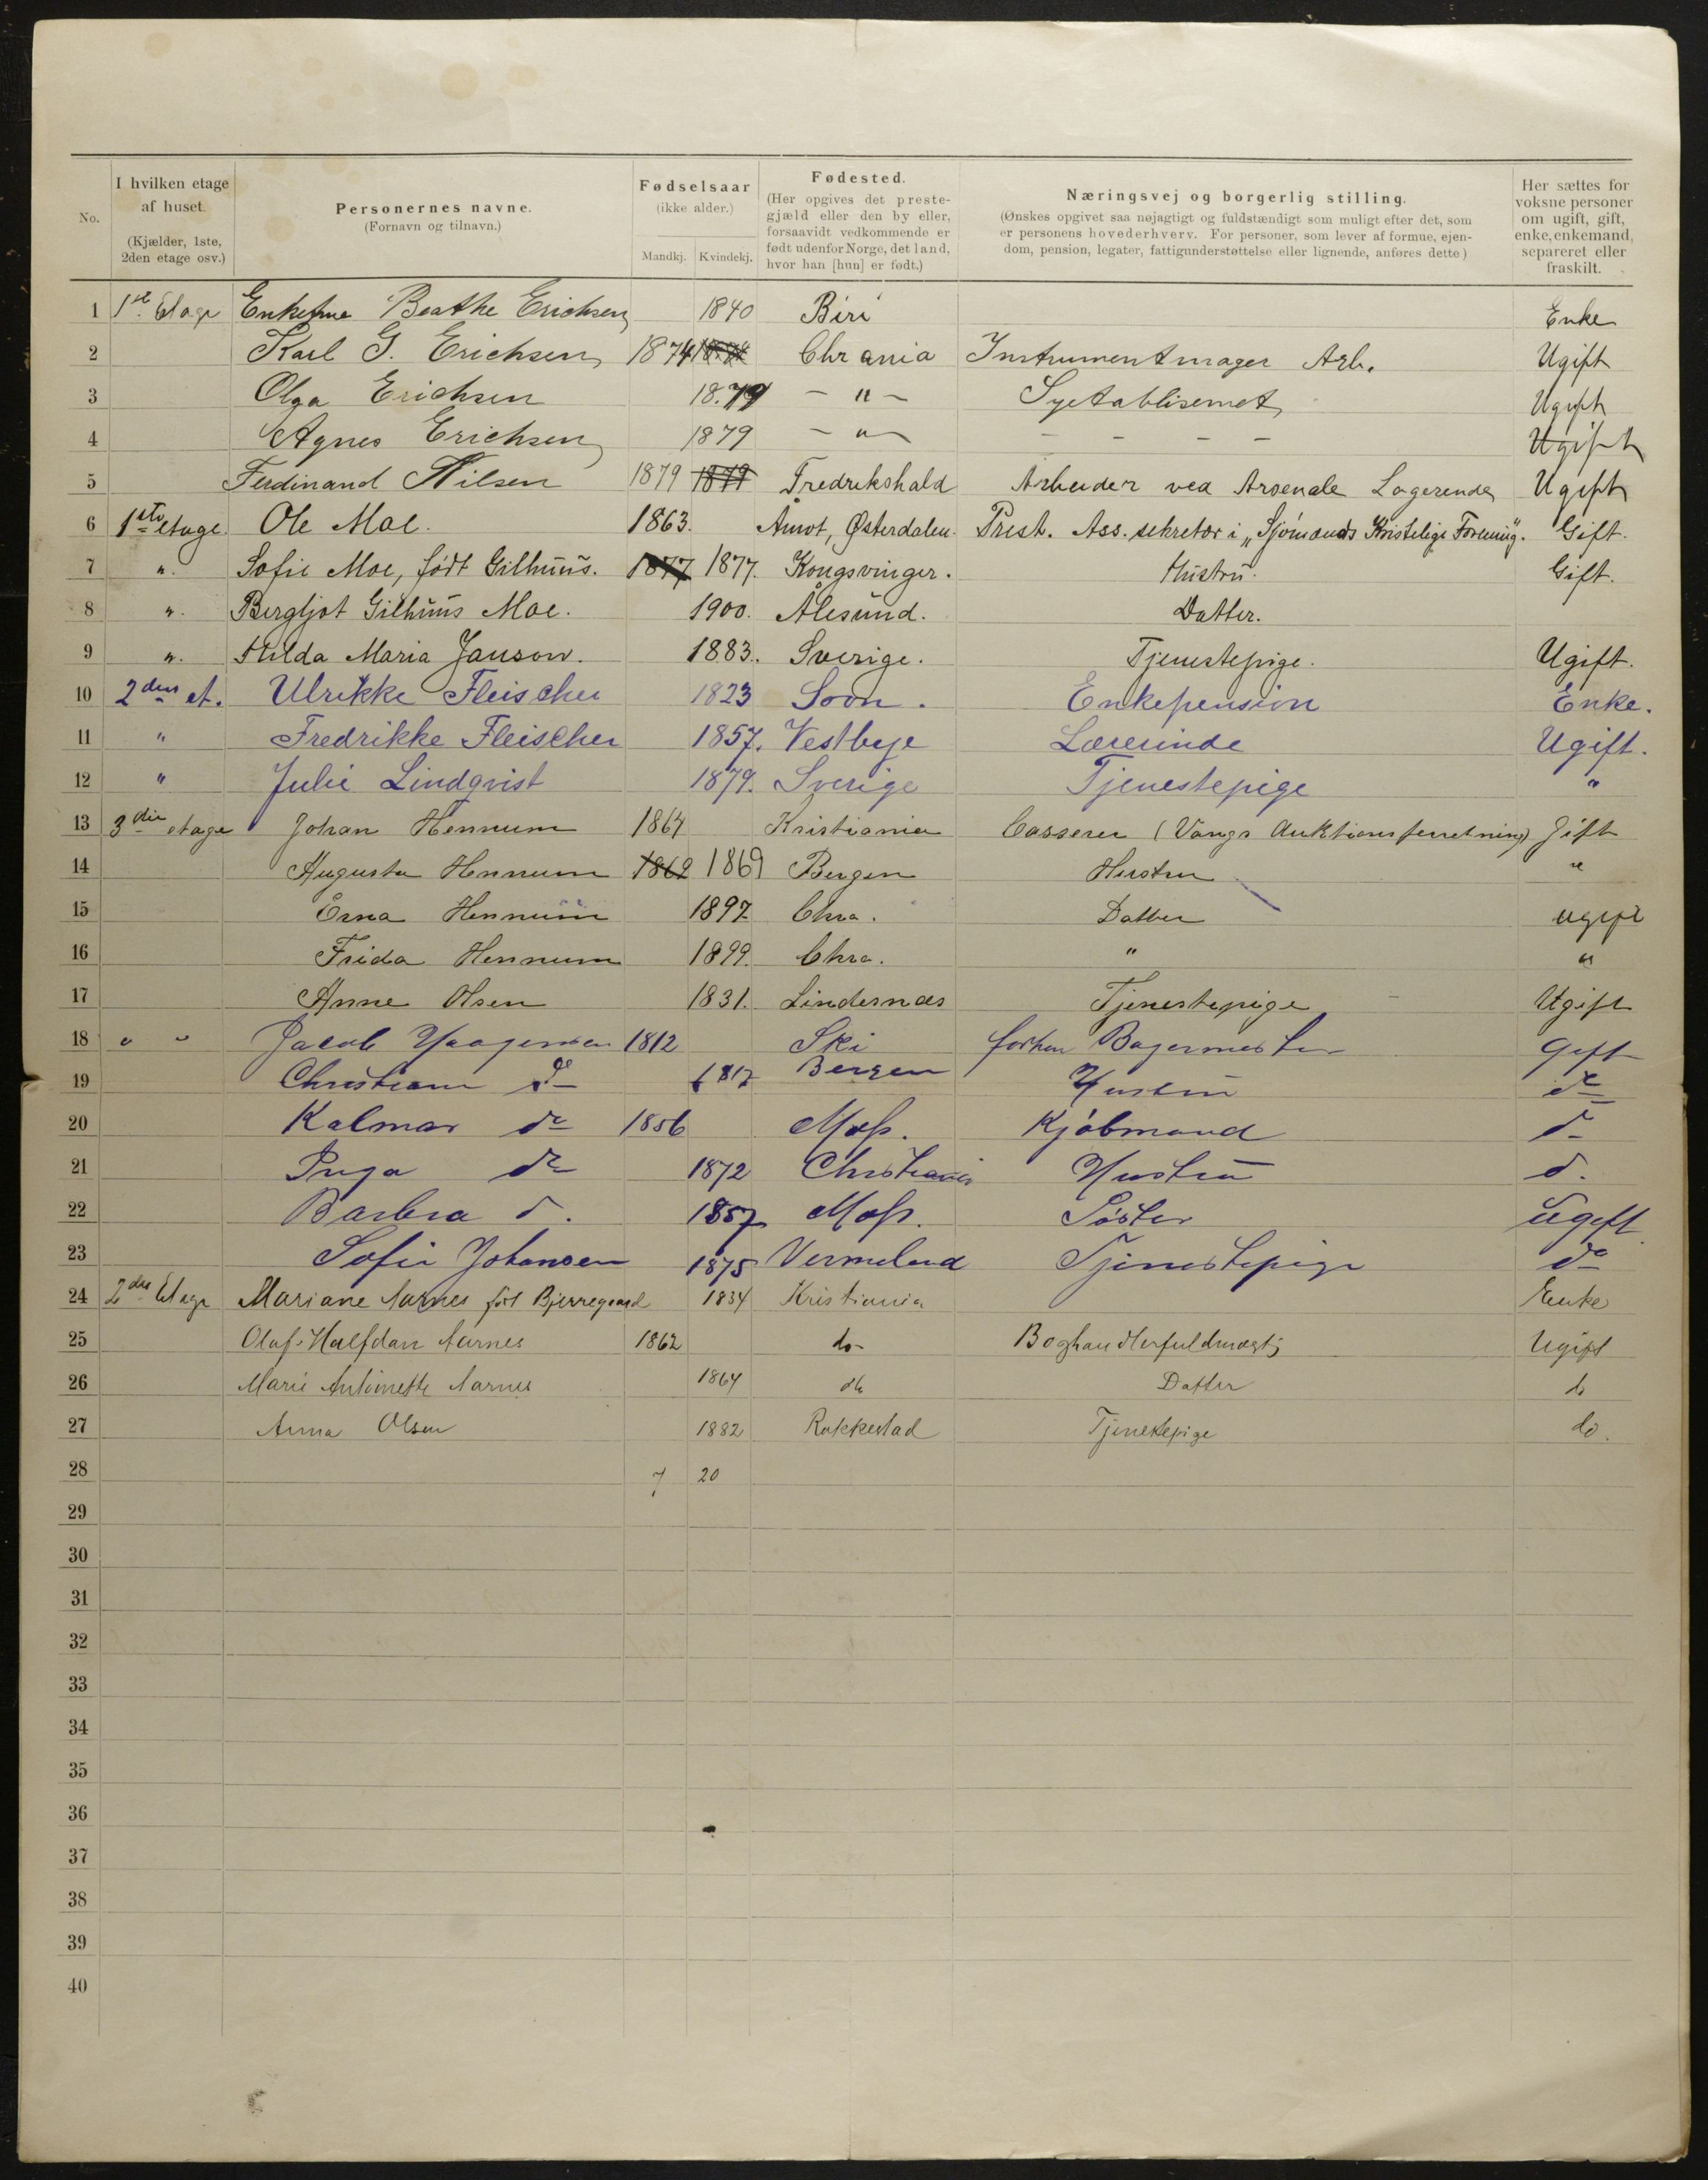 No. I hvilken etage af huset. (Kjælder, 1ste, 2den etage osv.) Personernes navne. (Fornavn og tilnavn.) Fødselsaar (ikke alder.) Mandkj. Kvindekj. Fødested. (Her opgives det prestegjæld eller den by eller, forsaavidt vedkommende er født udenfor Norge, det land, hvor han [hun] er født.) Næringsvej og borgerlig stilling. (Ønskes opgivet saa nøjagtigt og fuldstændigt som muligt efter det, som er personens hovederhverv. For personer, som lever af formue, ejendom, pension, legater, fattigunderstøttelse eller lignende, anføres dette) Her sættes for voksne personer om ugift, gift, enke, enkemand, separeret eller fraskilt.
1 1ste Etage Enkefrue Beathe Erichsen 1840 Biri Enke
2 Karl G. Erichsen 1874 Chrania Instrumentmager Arb. Ugift
3 Olga Erichsen 1879 - " - Syetablisemet Ugift
4 Agnes Erichsen 1879 - " - - - - - Ugift
5 Ferdinand Nilsen 1879 1879 Fredrikshald Arbeider ved Arsenale Logerende Ugift
6 1ste etage Ole Moe. 1863. Åmot, Østerdalen. Prest. Ass. sekretær i „Sjømænds Kristelige Forening". Gift.
7 ". Sofie Moe, født Gilhuus. 1877 1877. Kongsvinger. Hustru. Gift.
8 ". Bergljot Gilhuus Moe. 1900. Ålesund. Datter.
9 ". Hilda Maria Janson. 1883. Sverige. Tjenestepige. Ugift.
10 2den et. Ulrikke Fleischer 1823 Soon. Enkepension Enke.
11 " Fredrikke Fleischer 1857. Vestbye Lærerinde Ugift.
12 " Julie Lindqvist 1879. Sverige Tjenestepige "
13 3die etage Johan Hennum 1864 Kristiania Casserer (Vangs Auktionsforretning) Gift
14 Augusta Hennum 1862 1869 Bergen Hustru "
15 Erna Hennum 1897 Chra. Datter ugift
16 Frida Hennum 1899. Chra. " "
17 Anne Olsen 1831. Lindernæs Tjenestepige Ugift
18 " " Jacob 1812 Ski forhen Bagermester Gift
19 Christiane do 1817 Bergen Hustru do
20 Kalmar do 1856 Moss. Kjøbmand d-
21 Inga do 1872 Christiania Hustru d.
22 Barbra d. 1857 Moss. Søster Ugift
23 Sofie Johansen 1875 Vermeland Tjenestepige do
24 2den Etage Mariane Aarnes født Bjerregaard 1834 Kristiania Enke
25 Olaf Halfdan Aarnes 1862 do- Boghandlerfuldmægtig Ugift
26 Marie Antoinette Aarnes 1864 do Datter do
27 Anna Olsen 1882 Rakkestad Tjenestepige do.
28 7 20
29
30
31
32
33
34
35
36
37
38
39
40